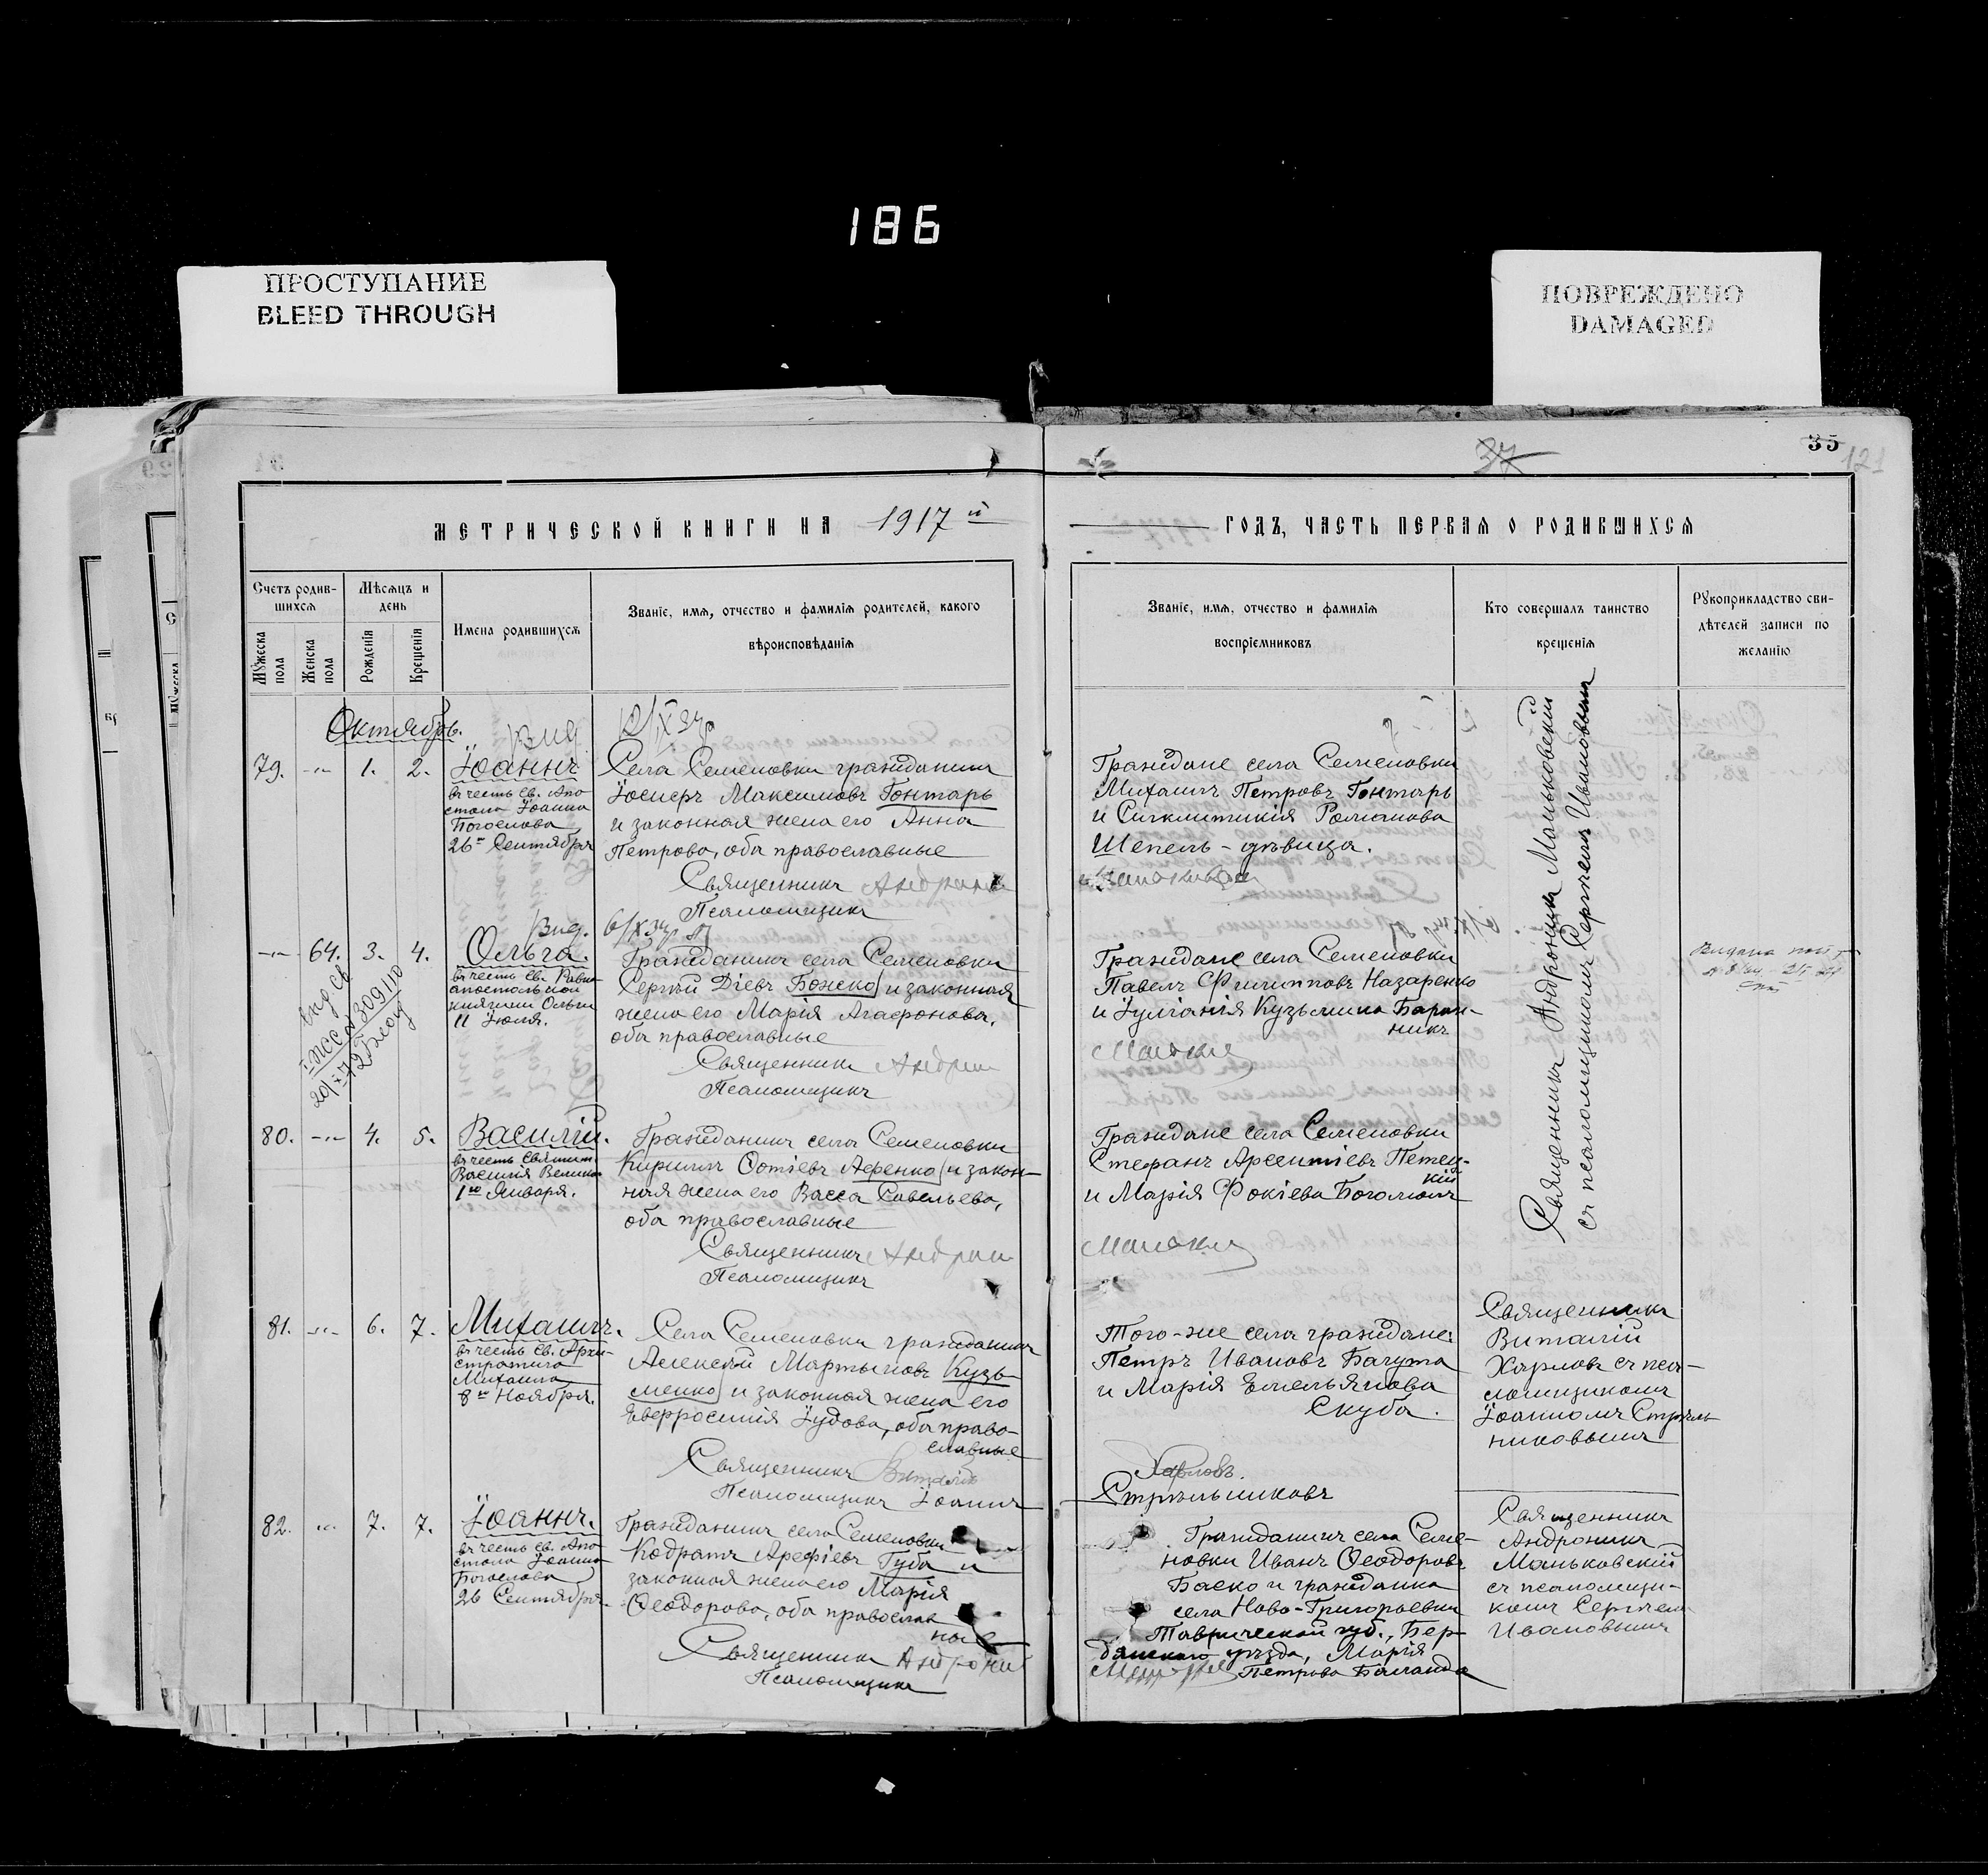 186
ПРОСТУПАНИЕ
BLEED THROUGH
ПОВРЕЖДЕНО
DAMAGED
37
35
121
МЕТРИЧЕСКОЙ КНИГИ НА 1917й
ГОДЪ, ЧАСТЬ ПЕРВАЯ О РОДИВШИХСЯ
Счетъ родив-
шихся
Мѣсяцъ и
день
Мужеска
пола
Женска
пола
Рожденія
Крещенія
Имена родившихся
Званіе, имя, отчество и фамилія родителей, какого
вѣроисповѣданія
Званіе, имя, отчество и фамилія
воспріемниковъ
Кто совершалъ таинство
крещенія
Рукоприкладство сви-
дѣтелей записи по
желанію
Октябрь.
79. -"- 1. 2.
Іоаннъ
въ честь св. Апо
стола Іоанна
Богослова
26го Сентября
Села Семеновки гражданинъ
Іосифъ Максимовъ Гонтарь
и законная жена его Анна
Петрова, оба православные
Священникъ
Псаломщикъ
Граждане села Семеновки
Михаилъ Петровъ Гонтарь
и Синклитикія Романова
Шепель - дѣвица.
Священникъ Андроникъ Маньковскій
съ псаломщикомъ Сергѣемъ Ивановымъ
-"- 64. 3. 4.
Ольга.
въ честь св. Равно
апостольной
княгини Ольги
11 Іюля.
Гражданинъ села Семеновки
Сергѣй Діевъ Божко и законная
жена его Марія Агафонова,
оба православные
Священникъ
Псаломщикъ
Граждане села Семеновки
Павелъ Филипповъ Назаренко
и Іуліанія Кузьмина Баран-
никъ
80. -"- 4. 5.
Василій.
въ честь Святит.
Василія Велика
1го Января.
Гражданинъ села Семеновки
Кириллъ Фотіевъ Аѳенко и закон-
ная жена его Васса Савельева,
оба православные
Священникъ
Псаломщикъ
Граждане села Семеновки
Стефанъ Арсентіевъ Петец-
кій
и Марія Фокіева Боголюбъ
81. -"- 6. 7.
Михаилъ.
въ честь св. Архи-
стратига
Михаила
8го Ноября.
Села Семеновки гражданинъ
Алексѣй Мартыновъ Кузь-
менко и законная жена его
Евфросинія Іудова, оба право-
славные
Священникъ Виталій
Псаломщикъ Іоаннъ
Того-же села граждане:
Петръ Ивановъ Багута
и Марія Емельянова
Скуба.
Харловъ.
Стрѣльниковъ
Священникъ
Виталій
Харловъ съ пса-
ломщикомъ
Іоанномъ Стрѣль-
никовымъ
82. -"- 7. 7.
Іоаннъ.
въ честь св. Апо
стола Іоанна
Богослова
26 Сентября.
Гражданинъ села Семеновки
Кодратъ Арефіевъ Губа и
законная жена его Марія
Ѳеодорова, оба православ
ные
Священникъ
Псаломщикъ
Гражданинъ села Семе-
новки Иванъ Ѳеодоровъ
Баско и гражданка
села Ново-Григорьевки
Таврической губ., Бер-
дянскаго уѣзда, Марія
Петрова Баланда
Священникъ
Андроникъ
Маньковскій
съ псаломщи-
комъ Сергѣемъ
Ивановымъ